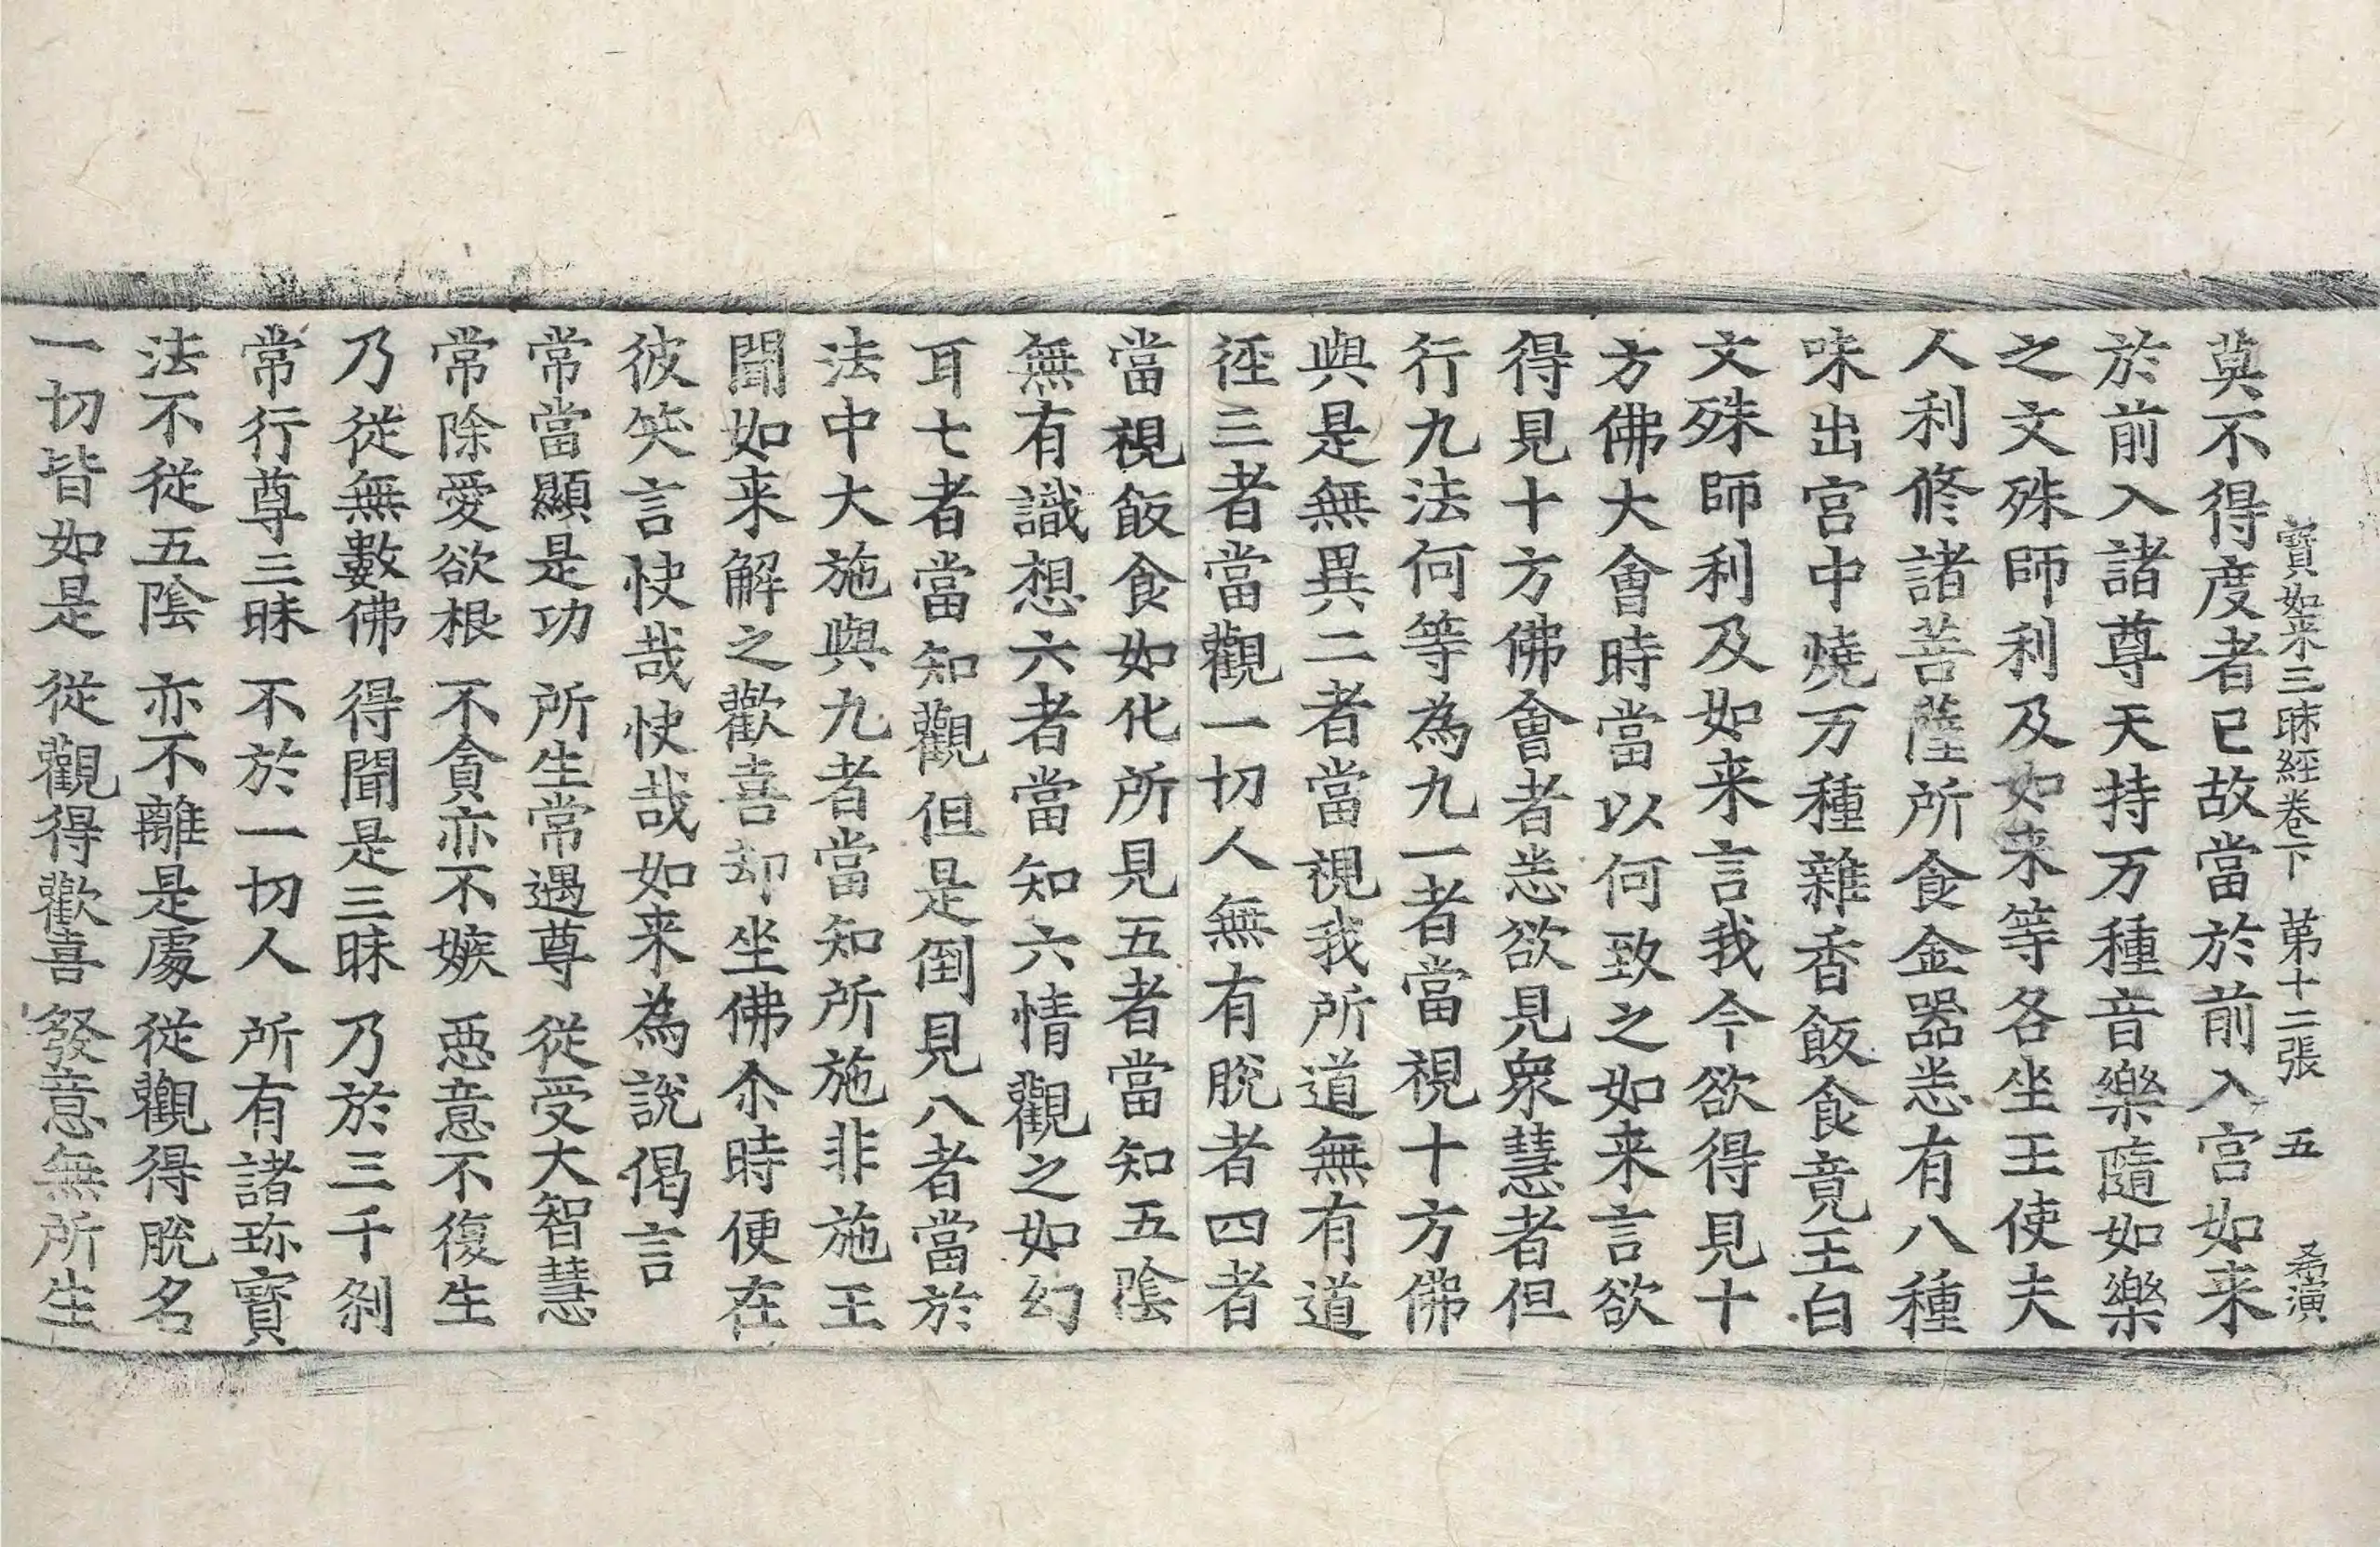 寶如来三昧經卷下 苐十二張 五 希演
莫不得度者已故當於前入宫如来
於前入諸尊天持万種音樂隨如樂
之文殊師利及如来等各坐王使夫
人利修諸菩薩所食金器悉有八種
味出宫中燒万種雜香飯食竟王白
文殊師利及如来言我今欲得見十
方佛大會時當以何致之如来言欲
得見十方佛會者悉欲見衆慧者但
行九法何等為九一者當視十方佛
與是無異二者當視我所道無有道
徑三者當觀一切人無有脫者四者
當視飯食如化所見五者當知五陰
無有識想六者當知六情觀之如幻
耳七者當知觀但是倒見八者當於
法中大施與九者當知所施非施王
聞如来解之歡喜却坐佛尒時便在
彼笑言快哉快哉如来為說偈言
常當顯是功 所生常遇尊 從受大智慧
常除愛欲根 不貪亦不嫉 惡意不復生
乃從無數佛 得聞是三昧 乃於三千剎
常行尊三昧 不於一切人 所有諸珎寳
法不從五陰 亦不離是處 從觀得脫名
一切皆如是 從觀得歡喜 發意無所生